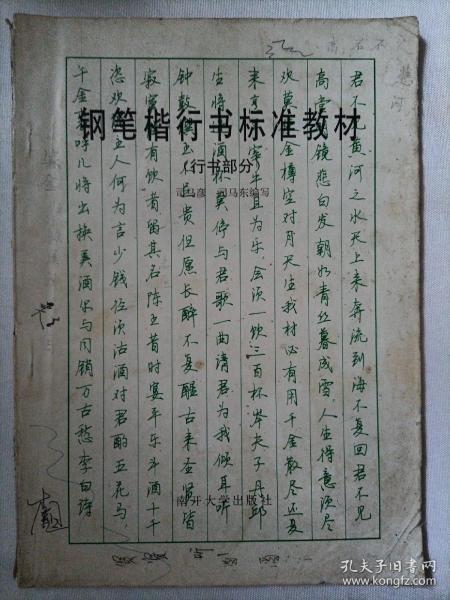 钢笔楷行书标准教材
(行书部分)
司马彦 司马东编写
南开大学出版社
君不见黄河之水天上来奔流到海不复回君不见
高堂明镜悲白发朝如青丝暮成雪人生得意须尽
欢莫使金樽空对月天生我材必有用千金散尽还复
来烹羊宰牛且为乐会须一饮三百杯岑夫子丹邱
生将进酒杯莫停与君歌一曲请君为我倾耳听
钟鼓馔玉不足贵但愿长醉不复醒古来圣贤皆
寂寞惟有饮者留其名陈王昔时宴平乐斗酒十千
恣欢谑主人何为言少钱径须沽酒对君酌五花马
千金裘呼儿将出换美酒与尔同销万古愁李白诗
孔夫子旧书网
book.kongfz.com